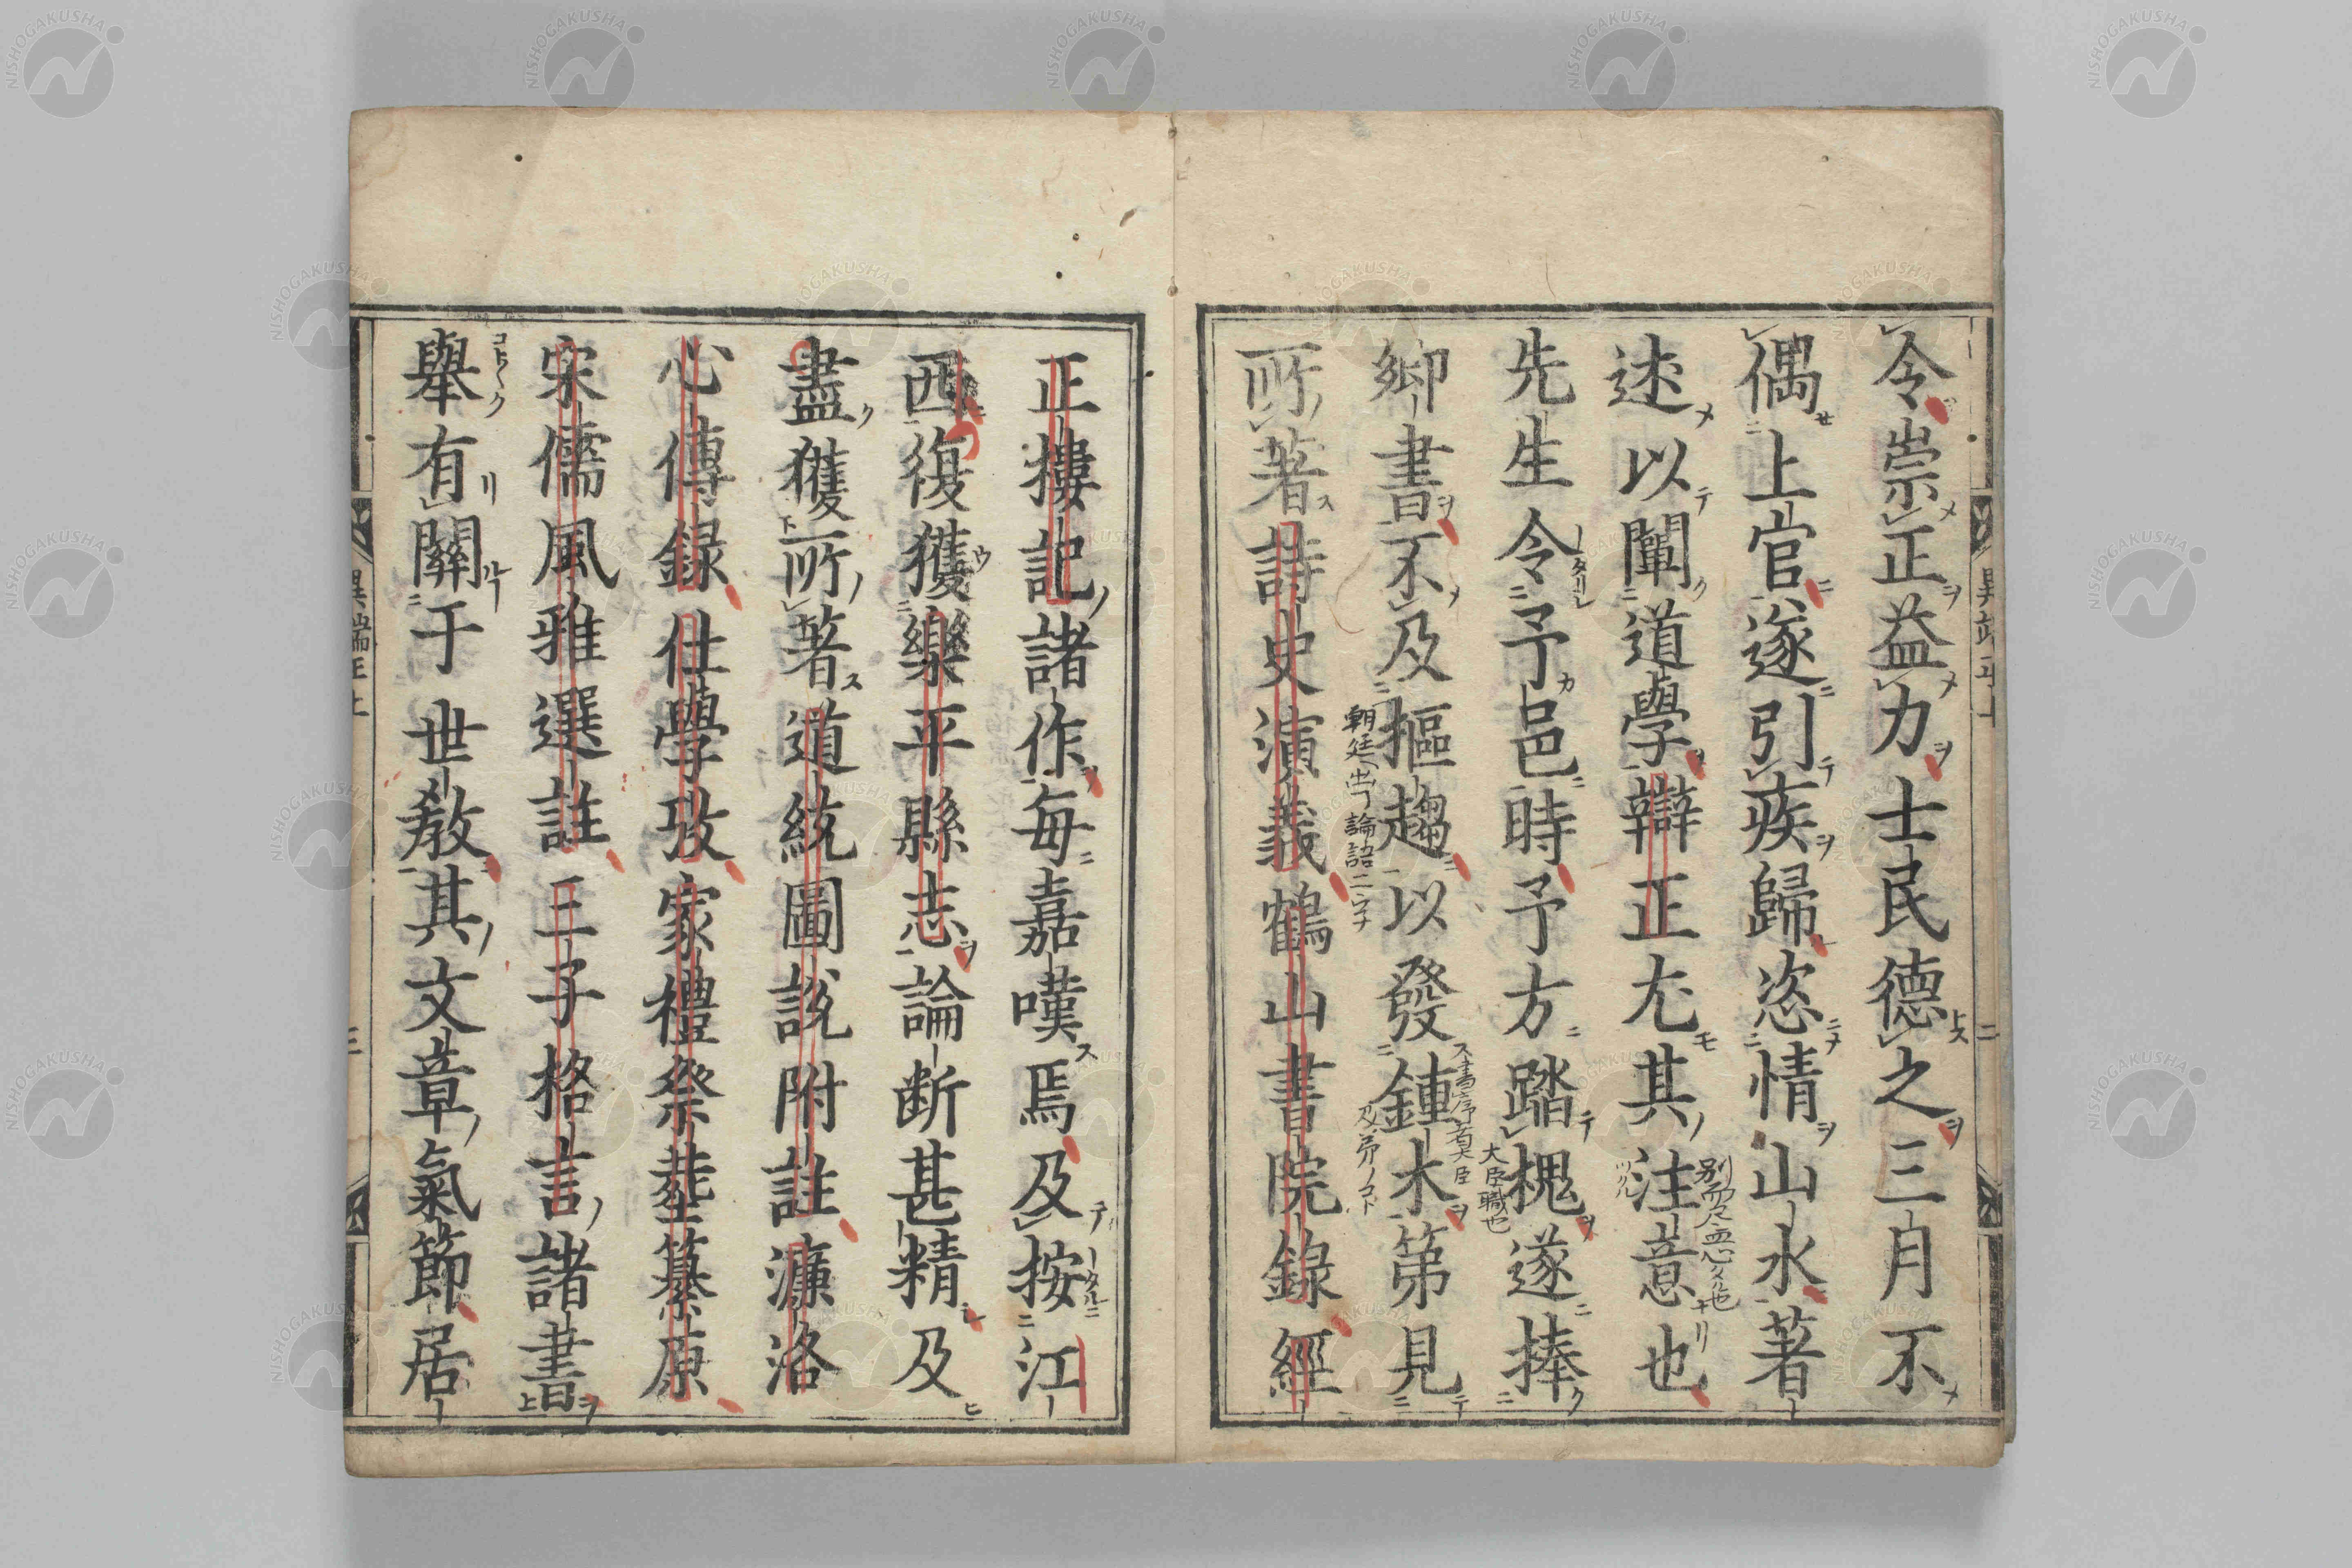 令崇正益力士民德之三月不
偶上官遂引疾歸恣情山水著
述以闡道學辯正尤其注意也
先生令予邑時予方踏槐遂捧
鄉書不及摳趨以發鍾木第見
所著詩史演義鶴山書院錄經
正摟記諸作每嘉嘆焉及按江
西復獲樂平縣志論斷甚精及
盡獲所著道統圖說附註濂洛
心傳錄仕學攷家禮祭葬纂原
宋儒風雅選註三子格言諸書
舉有關于世教其文章氣節居